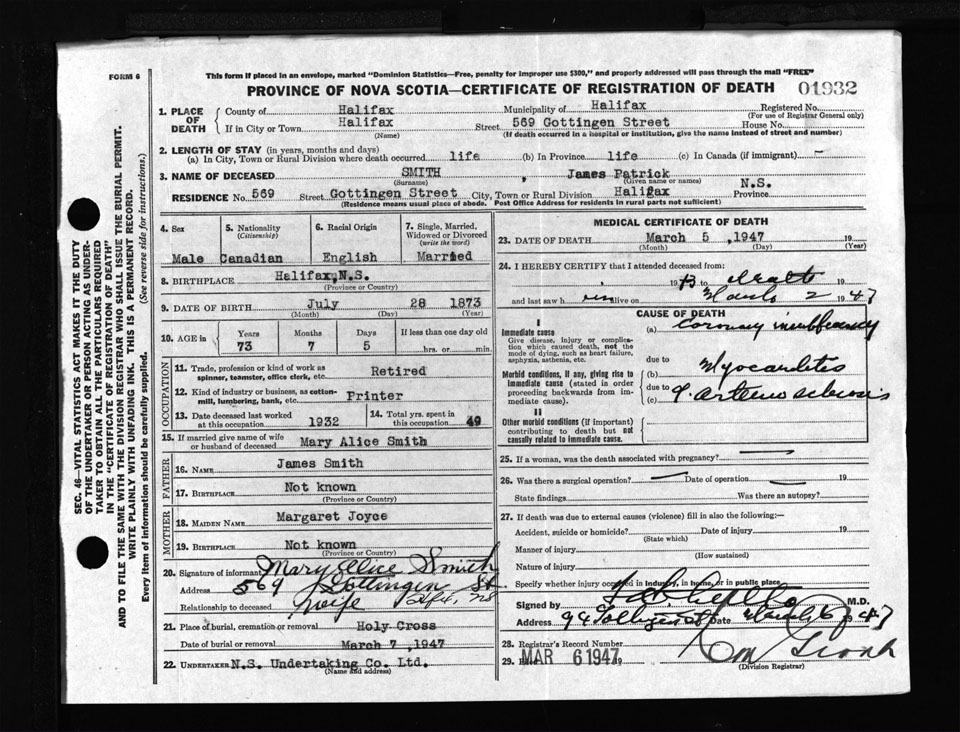 FORM 6
This form if placed in an envelope, marked "Dominion Statistics—Free, penalty for improper use $300," and properly addressed will pass through the mail "FREE"
PROVINCE OF NOVA SCOTIA—CERTIFICATE OF REGISTRATION OF DEATH 01932
1. PLACE OF DEATH
County of Halifax Municipality of Halifax Registered No.
(For use of Registrar General only)
If in City or Town Halifax Street 569 Gottingen Street House No.
(Name) (If death occurred in a hospital or institution, give the name instead of street and number)
2. LENGTH OF STAY (in years, months and days)
(a) In City, Town or Rural Division where death occurred life (b) In Province life (c) In Canada (if immigrant) —
3. NAME OF DECEASED SMITH , James Patrick
(Surname) (Given name or names)
RESIDENCE No. 569 Street Gottingen Street City, Town or Rural Division Halifax Province N.S.
(Residence means usual place of abode. Post Office Address for residents in rural parts not sufficient)
4. Sex
Male
5. Nationality
(Citizenship)
Canadian
6. Racial Origin
English
7. Single, Married, Widowed or Divorced
(write the word)
Married
8. BIRTHPLACE Halifax, N.S.
(Province or Country)
9. DATE OF BIRTH July 28 1873
(Month) (Day) (Year)
10. AGE in
Years Months Days If less than one day old
73 7 5 hrs. or min.
OCCUPATION
11. Trade, profession or kind of work as spinner, teamster, office clerk, etc. Retired
12. Kind of industry or business, as cotton-mill, lumbering, bank, etc. Printer
13. Date deceased last worked at this occupation 1932
14. Total yrs. spent in this occupation 49
15. If married give name of wife or husband of deceased Mary Alice Smith
FATHER
16. NAME James Smith
17. BIRTHPLACE Not known
(Province or Country)
MOTHER
18. MAIDEN NAME Margaret Joyce
19. BIRTHPLACE Not known
(Province or Country)
20. Signature of informant Mary Alice Smith
Address 569 Gottingen St
Hfx, NS
Relationship to deceased wife
21. Place of burial, cremation or removal Holy Cross
Date of burial or removal March 7, 1947
22. UNDERTAKER N.S. Undertaking Co. Ltd.
(Name and address)
MEDICAL CERTIFICATE OF DEATH
23. DATE OF DEATH March 5, 1947 19
(Month) (Day) (Year)
24. I HEREBY CERTIFY that I attended deceased from:
19 to death 19
and last saw h im alive on March 2 1947
CAUSE OF DEATH
I
Immediate cause
Give disease, injury or complication which caused death, not the mode of dying, such as heart failure, asphyxia, asthenia, etc.
(a) Coronary insufficiency
due to
Morbid conditions, if any, giving rise to immediate cause (stated in order proceeding backwards from immediate cause).
(b) Myocarditis
due to
(c) arterio sclerosis
II
Other morbid conditions (if important) contributing to death but not causally related to immediate cause.
25. If a woman, was the death associated with pregnancy? —
26. Was there a surgical operation? — Date of operation — 19
State findings Was there an autopsy?
27. If death was due to external causes (violence) fill in also the following:—
Accident, suicide or homicide? Date of injury 19
(State which)
Manner of injury
(How sustained)
Nature of injury
Specify whether injury occurred in industry, in home, or in public place
Signed by M.D.
Address Date March 6 1947
28. Registrar's Record Number
29. MAR 6 1947 19
(Division Registrar)
SEC. 46—VITAL STATISTICS ACT MAKES IT THE DUTY
OF THE UNDERTAKER OR PERSON ACTING AS UNDER-
TAKER TO OBTAIN ALL THE PARTICULARS REQUIRED
IN THE "CERTIFICATE OF REGISTRATION OF DEATH"
AND TO FILE THE SAME WITH THE DIVISION REGISTRAR WHO SHALL ISSUE THE BURIAL PERMIT.
WRITE PLAINLY WITH UNFADING INK. THIS IS A PERMANENT RECORD.
Every item of information should be carefully supplied. (See reverse side for instructions.)